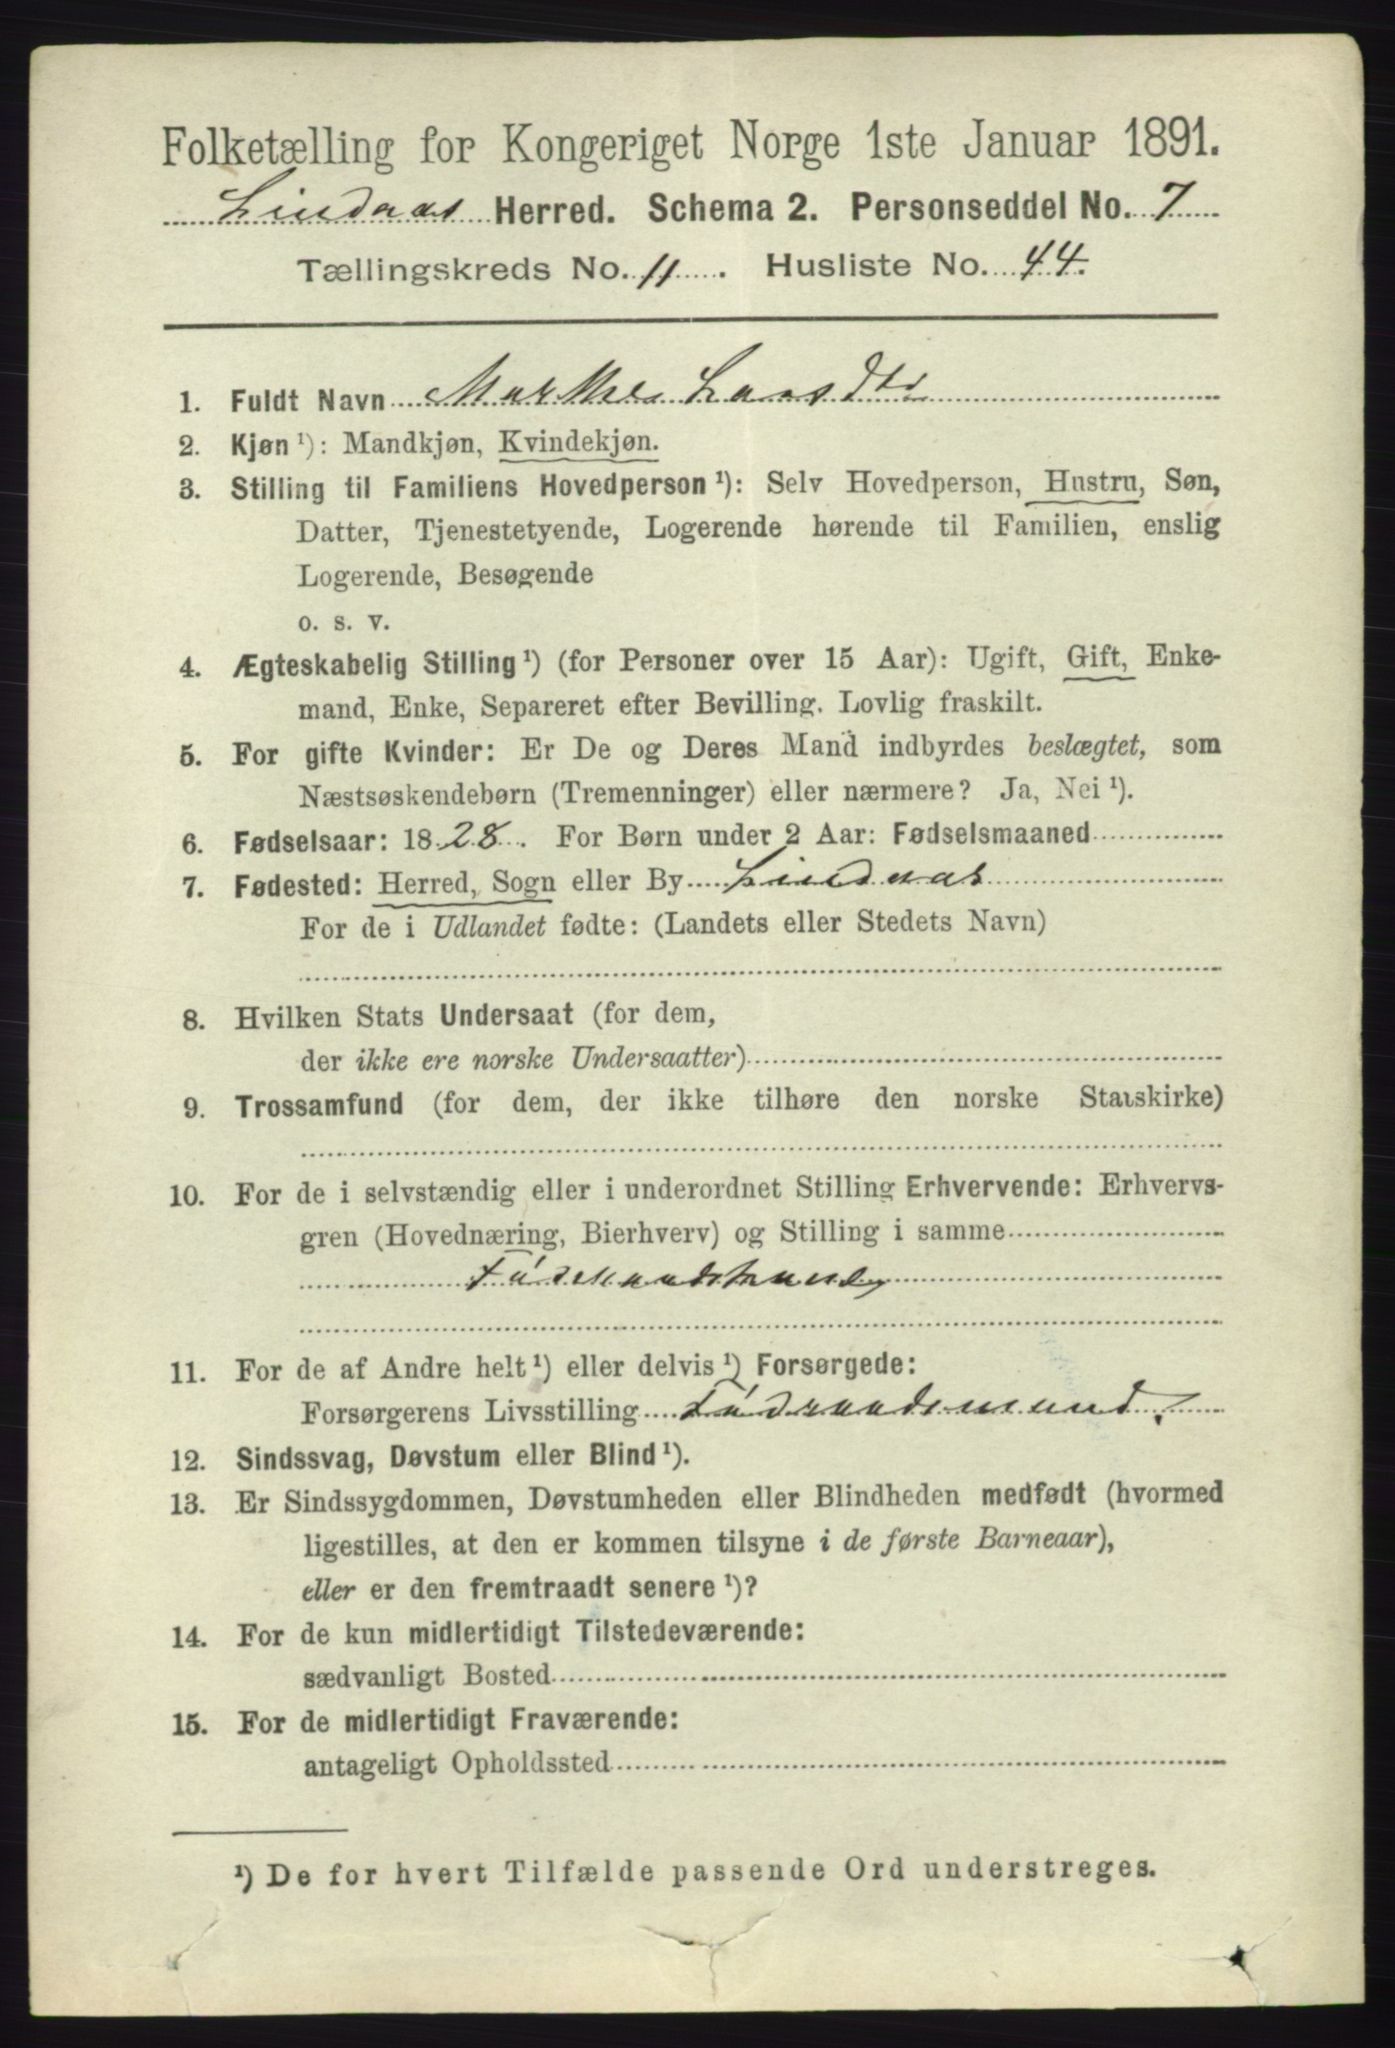 Folketælling for Kongeriget Norge 1ste Januar 1891.
Lindaas Herred. Schema 2. Personseddel No. 7
Tællingskreds No. 11. Husliste No. 44.
1. Fuldt Navn Marthe Larsdtr
2. Kjøn ¹): Mandkjøn, Kvindekjøn.
3. Stilling til Familiens Hovedperson ¹): Selv Hovedperson, Hustru, Søn,
Datter, Tjenestetyende, Logerende hørende til Familien, enslig
Logerende, Besøgende
o. s. v.
4. Ægteskabelig Stilling ¹) (for Personer over 15 Aar): Ugift, Gift, Enke-
mand, Enke, Separeret efter Bevilling. Lovlig fraskilt.
5. For gifte Kvinder: Er De og Deres Mand indbyrdes beslægtet, som
Næstsøskendebørn (Tremenninger) eller nærmere? Ja, Nei ¹).
6. Fødselsaar: 1828. For Børn under 2 Aar: Fødselsmaaned
7. Fødested: Herred, Sogn eller By Lindaas
For de i Udlandet fødte: (Landets eller Stedets Navn)
8. Hvilken Stats Undersaat (for dem,
der ikke ere norske Undersaatter)
9. Trossamfund (for dem, der ikke tilhøre den norske Statskirke)
10. For de i selvstændig eller i underordnet Stilling Erhvervende: Erhvervs-
gren (Hovednæring, Bierhverv) og Stilling i samme
11. For de af Andre helt ¹) eller delvis ¹) Forsørgede:
Forsørgerens Livsstilling Føderaadsmand.
12. Sindssvag, Døvstum eller Blind ¹).
13. Er Sindssygdommen, Døvstumheden eller Blindheden medfødt (hvormed
ligestilles, at den er kommen tilsyne i de første Barneaar),
eller er den fremtraadt senere ¹)?
14. For de kun midlertidigt Tilstedeværende:
sædvanligt Bosted
15. For de midlertidigt Fraværende:
antageligt Opholdssted
¹) De for hvert Tilfælde passende Ord understreges.